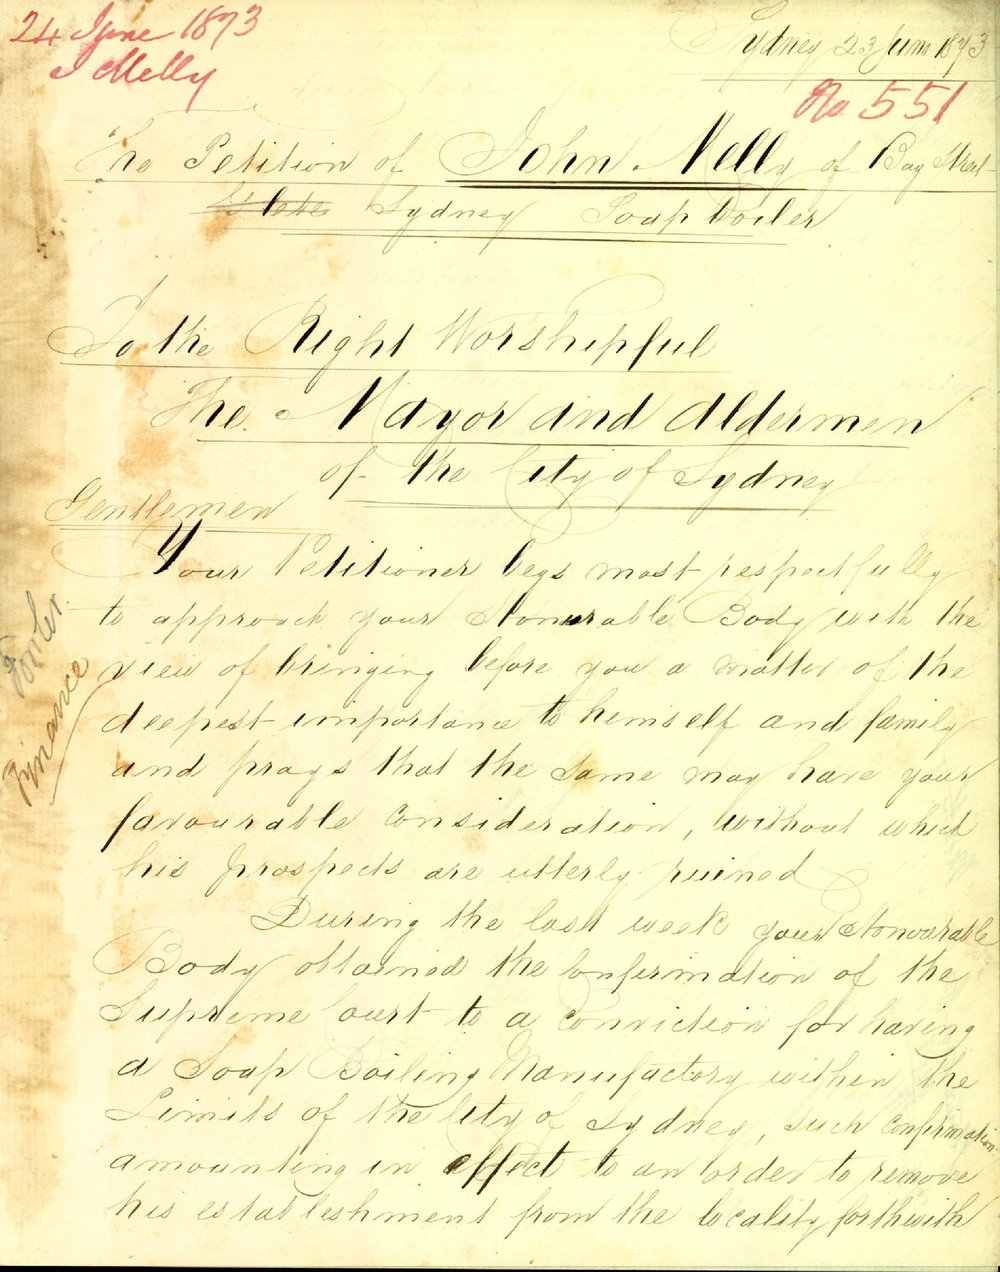 24 June 1873
J Melly
Sydney 23 June 1873
No 551
The Petition of John Melly of Bay Street
Glebe Sydney Soap Boiler
To the Right Worshipful
The Mayor and Aldermen
of the City of Sydney
Gentlemen
Your Petitioner begs most respectfully
to approach your Honorable Body with the
view of bringing before you a matter of the
deepest importance to himself and family
and prays that the same may have your
favourable consideration, without which
his prospects are utterly ruined
During the last week your Honourable
Body obtained the Confirmation of the
Supreme Court to a Conviction for having
a Soap Boiling Manufactory within the
Limits of the City of Sydney, such confirmation
amounting in effect to an order to remove
his establishment from the locality forthwith
Fowler
Finance